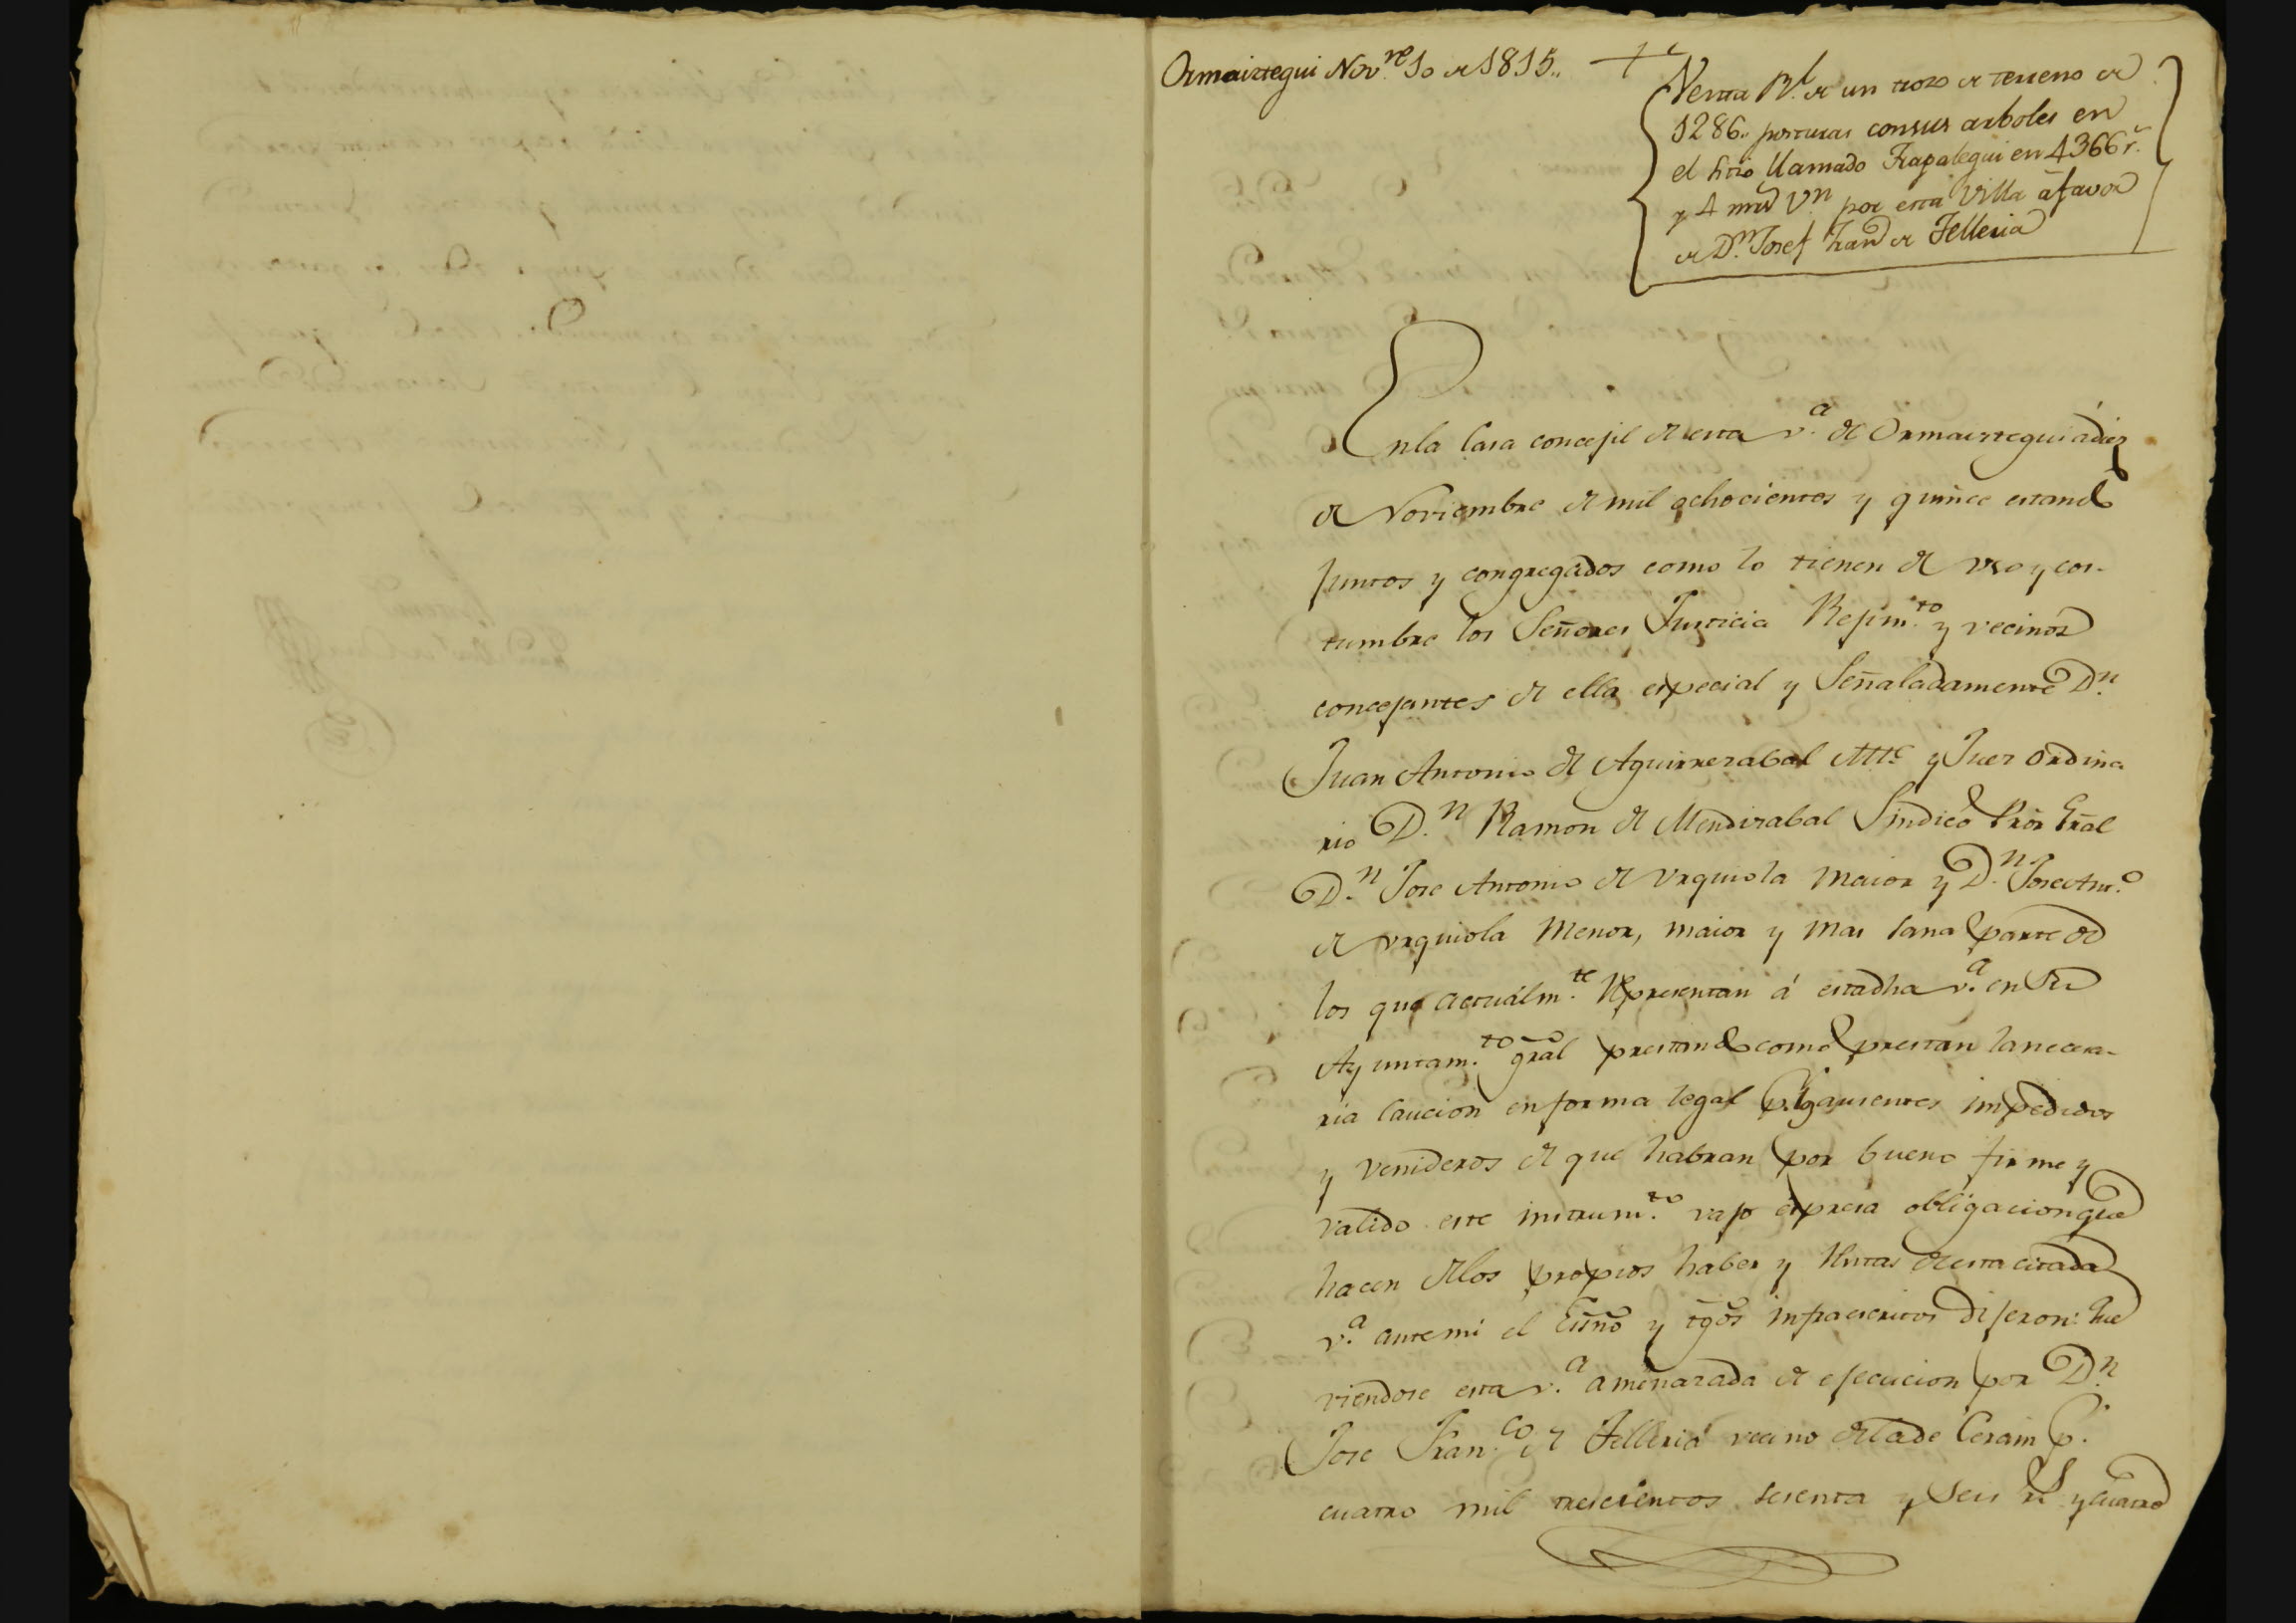 Ormaiztegui Nov.re 10 de 1815..
Venta Rl. de un trozo de terreno de
1286.. posturas consus arboles en
el sitio llamado Trapalegui en 4366 r.s
y 4 mrs Vn por esta Villa á favor
de Dn. Josef Fran.co de Telleria
Enla Casa concejil de esta v.a de Ormaiztegui á diez
de Noviembre de mil ochocientos y quince estando
juntos y congregados como lo tienen de uso y cos-
tumbre los Señores Justicia Rejim.to y vecinos
concejantes de ella especial y Señaladamente Dn.
Juan Antonio de Aguirrezabal Alle y Juez ordina
rio D.n Ramon de Mendizabal Sindico Pror Gral
D.n Jose Antonio de Urquiola maior y D.n Jose Ant.o
de urquiola Menor, maior y mas sana parte de
los que actualm.te Representan á esta dha v.a en su
Ayuntam.to gral prestando como prestan la necesa-
ria caucion en forma legal p.r los ausentes impedidos
y venideros de que habran por bueno firme y
valido este instrum.to vajo expresa obligacion que
hacen de los propios haber y Rentas de esta citada
v.a ante mi el Essno y tgos infraescritos dijeron: Que
viendose esta v.a amenazada de ejecucion por Dn.
Jose Fran.co de Telleria vecino de la de Cerain p.r
cuatro mil trescientos sesenta y seis rs y cuatro